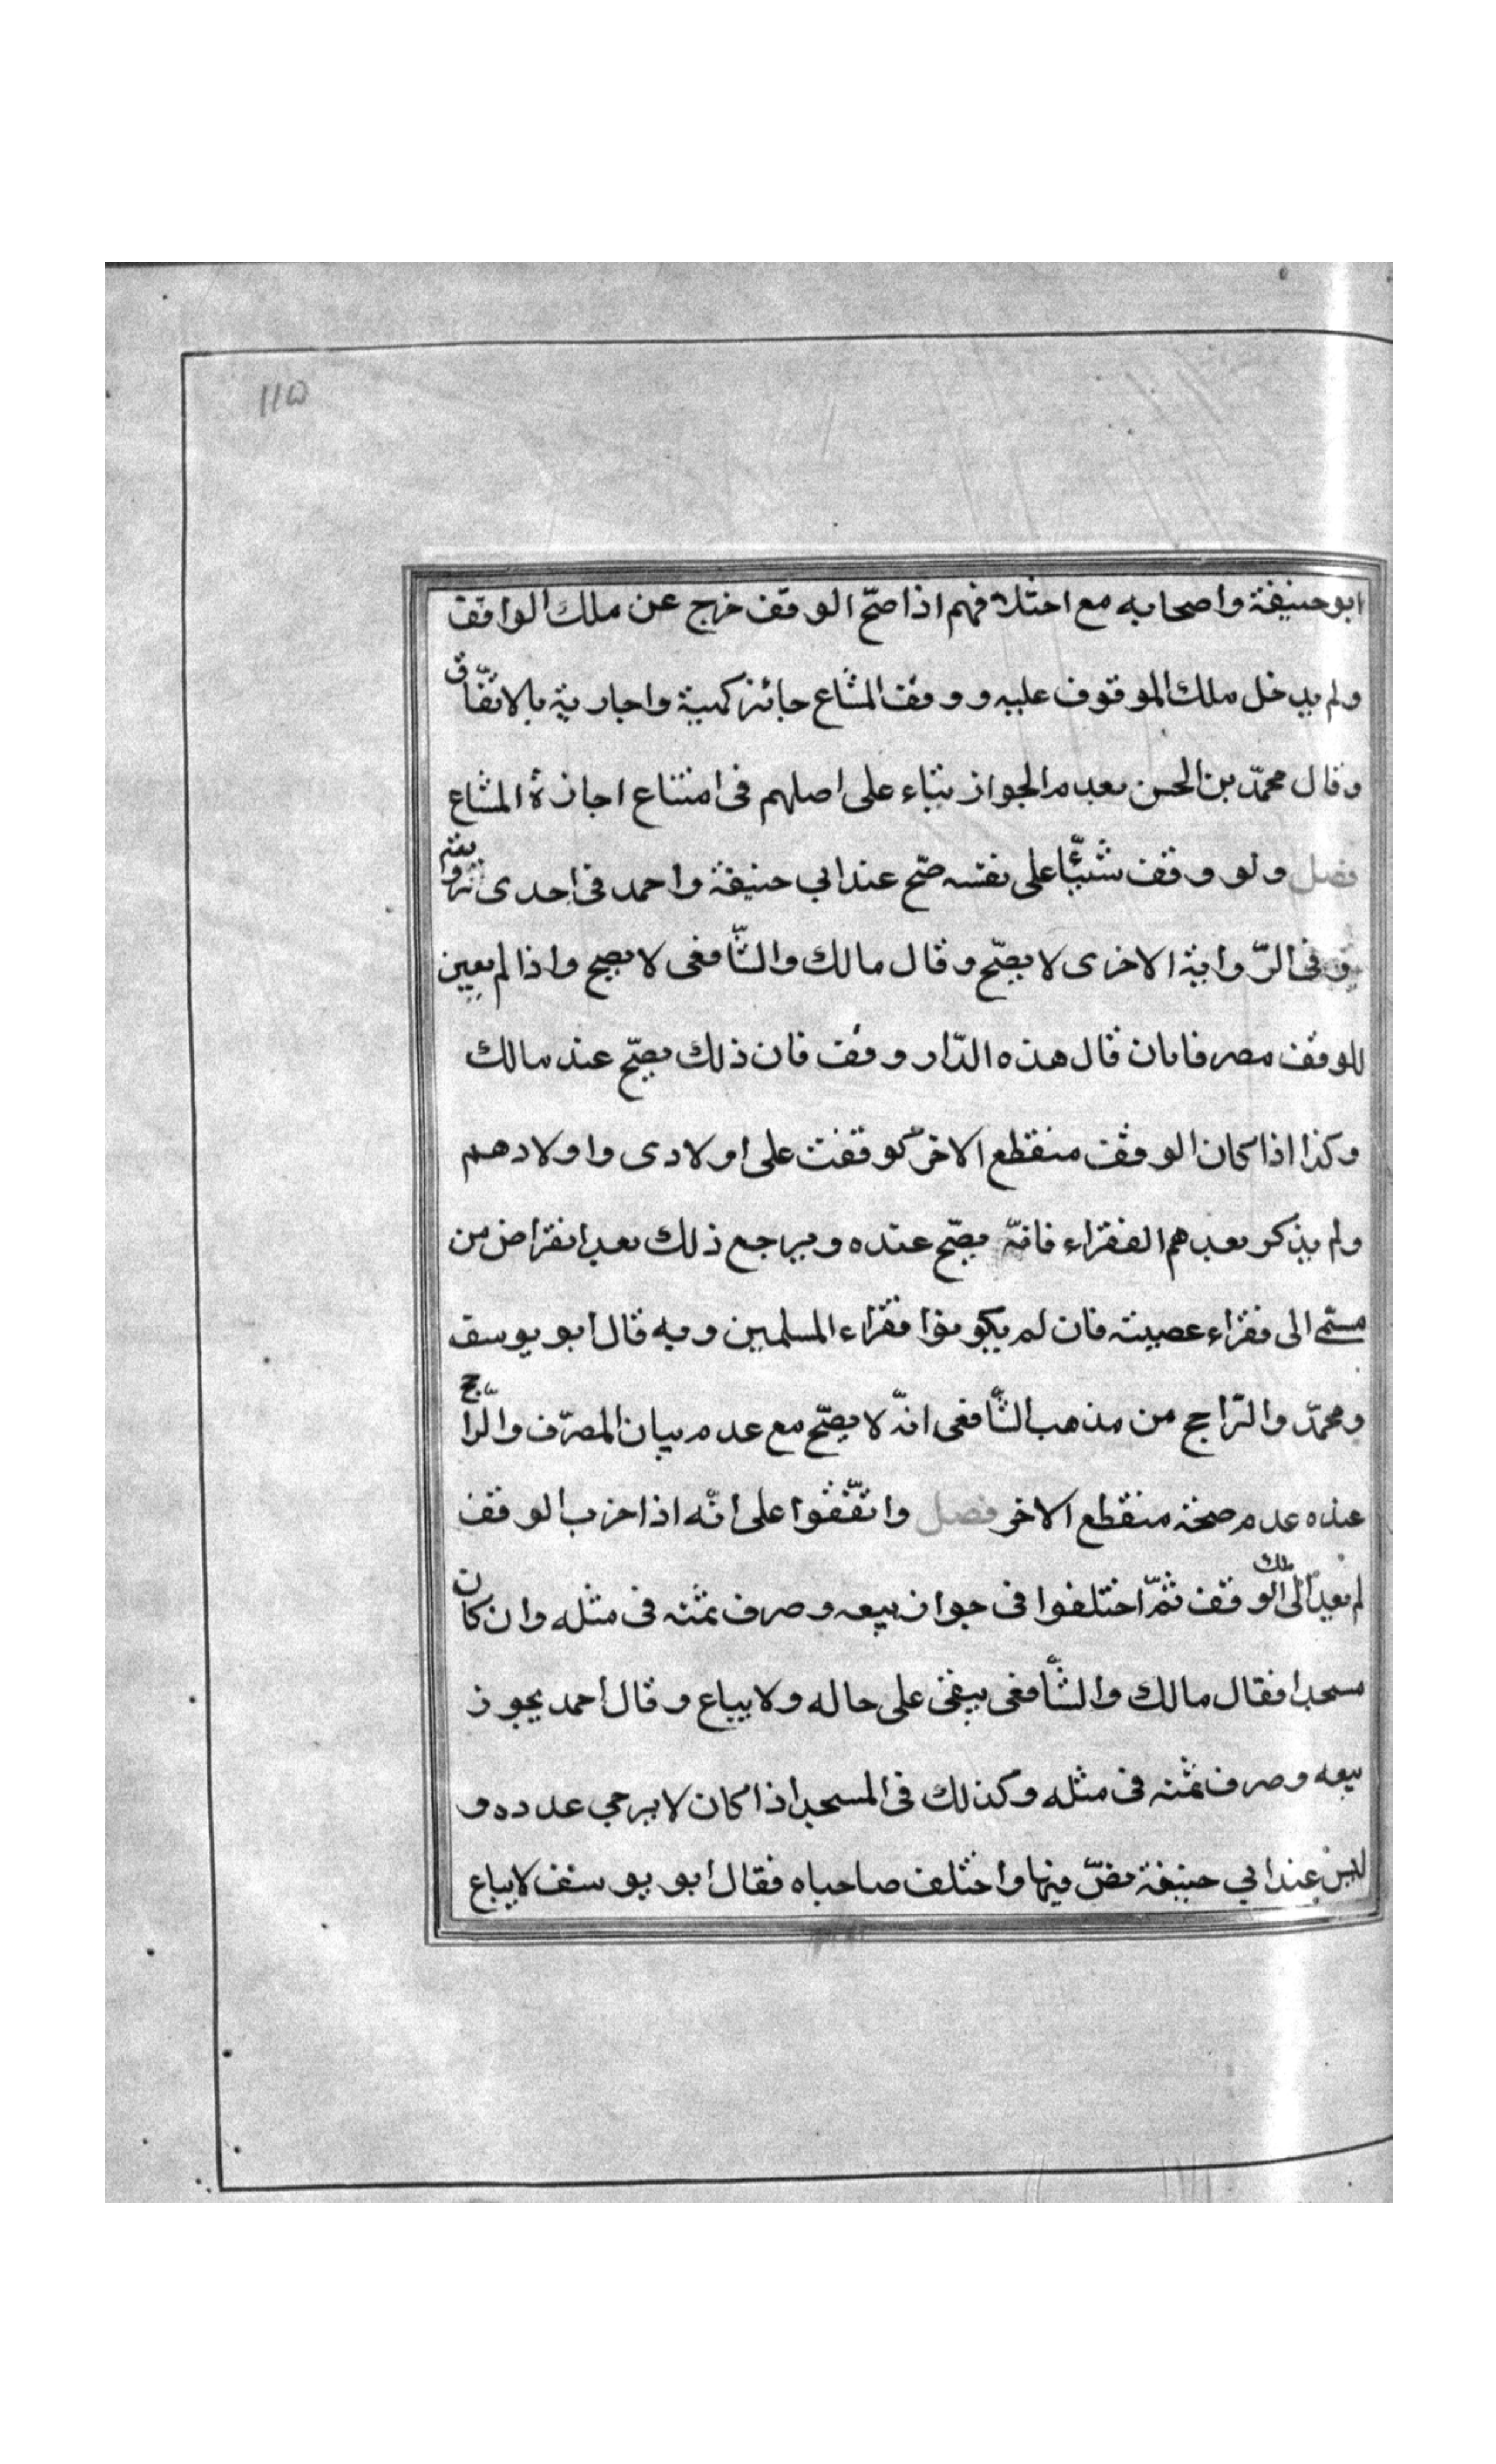 ١١٥
ابو حنيفة واصحابه مع اختلافهم اذا صحّ الوقف خرج عن ملك الواقف
ولم يدخل ملك الموقوف عليه ووقف المشاع جائز كهبية واجارية بالاتفّاق
وقال محمّد بن الحسن بعدم الجواز بناء على اصلهم فى امتناع اجازة المشاع
فصل ولو وقف شيئًا على نفسه صحّ عند ابي حنيفة واحمد فى احدى
وفى الرّواية الاخرى لا يصحّ وقال مالك والشّافعى لا يصح واذا لم يعين
للوقف مصرفا بان قال هذه الدّار وقف فان ذلك يصحّ عند مالك
وكذا اذا كان الوقف منقطع الاخر كوقفت على اولادى واولادهم
ولم يذكر بعدهم الفقراء فانّه يصحّ عنده ويرجع ذلك بعد انقراض من
مسمّى الى فقراء عصبيته فان لم يكونوا فقراء المسلمين وبه قال ابو يوسف
ومحمّد والرّاجح من مذهب الشّافعى انّه لا يصحّ مع عدم بيان المصرّف والرّاجح
عنده عدم صحّة منقطع الاخر فصل واتّفقوا على انّه اذا خرب الوقف
لم يعد الى ملك الوقف ثمّ اختلفوا فى جواز بيعه وصرف ثمنه فى مثله وان كان
مسجدا فقال مالك والشّافعى يبقى على حاله ولا يباع وقال احمد يجوز
بيعه وصرف ثمنه فى مثله وكذلك فى المسجد اذا كان لا يرجى عدده و
ليس عند ابي حنيفة نصّ فيها واختلف صاحباه فقال ابو يوسف لا يباع